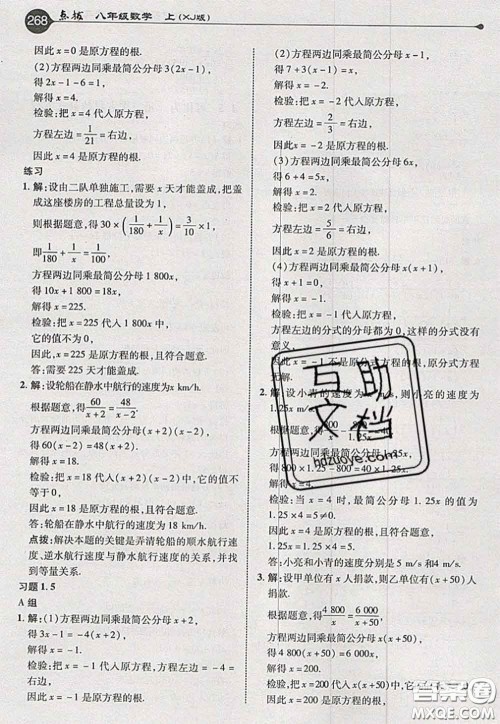 268 点拨 八年级数学 上(XJ版)
因此 x=0 是原方程的根.
(2)方程两边同乘最简公分母 3(2x-1),
得 2x-1-6=1,
解得 x=4.
检验:把 x=4 代入原方程,
方程左边=1/21=右边,
因此 x=4 是原方程的根.
练习
1. 解:设由二队单独施工,需要 x 天才能盖成,把盖
成这座楼房的工程总量设为 1,
则根据题意,得 30×(1/180+1/x)+3/10=1,
即 1/180+1/x=1/100,
方程两边同乘最简公分母 1 800x,
得 10x+1 800=18x,
解得 x=225.
检验:把 x=225 代入 1 800x 中,
它的值不为 0,
因此 x=225 是原方程的根,且符合题意.
答:需要 225 天才能盖成.
2. 解:设轮船在静水中航行的速度为x km/h.
根据题意,得 60/(x+2)=48/(x-2),
方程两边同乘最简公分母(x+2)(x-2),
得 60(x-2)=48(x+2).
解得 x=18.
检验:把 x=18 代入(x+2)(x-2)中,它的值不
等于 0,
因此 x=18 是原方程的根,且符合题意.
答:轮船在静水中航行的速度为 18 km/h.
点拨:解决本题的关键是弄清轮船的顺水航行速
度、逆水航行速度与静水航行速度的关系,并找
到等量关系.
习题 1.5
A 组
1. 解:(1)方程两边同乘最简公分母 x(x-2),
得 3x-(x-2)=0,
解得 x=-1.
检验:把 x=-1 代入原方程,方程左边=0=
右边,
因此 x=-1 是原方程的根.
(2)方程两边同乘最简公分母(x-1),
得 7+3(x-1)=x,
解得 x=-2.
检验:把 x=-2 代入原方程,
方程左边=2/3=右边,
因此 x=-2 是原方程的根.
(3)方程两边同乘最简公分母 6x,
得 3+x=5,
解得 x=2.
检验:把 x=2 代入原方程,
方程左边=5/6=右边,
因此 x=2 是原方程的根.
(4)方程两边同乘最简公分母 x(x+1),
得 x+1=0,
解得 x=-1.
检验:把 x=-1 代入原方程,
方程左边的分式的分母都为 0,这样的分式没有
意义,
因此 x=-1 不是原分式方程的根,原分式方程
无解.
2. 解:设小青的速度为 x m/s,则小亮的速度为
1.25x m/s.
根据题意,得
方程两边同乘最简公分母 1.25x,
得 800×1.25-800=40×1.25x,
解得 x=4.
检验:当 x=4 时,最简公分母 1.25x 的值为
1.25×4=5≠0,
因此 x=4 是原方程的根,且符合题意.
1.25x=1.25×4=5.
答:小亮和小青的速度分别是 5 m/s和4 m/s.
3. 解:设甲单位有 x 人捐款,则乙单位有(x+50)人
捐款.
根据题意,得 4 800/x=6 000/(x+50),
方程两边同乘最简公分母 x(x+50),
得 4 800(x+50)=6 000x,
解得 x=200.
检验:把 x=200 代入 x(x+50)中,它的值不等
于 0,
因此 x=200 是原方程的根,且符合题意.
互助
文档
hdzuoye.com
答案圈
MXQE.COM